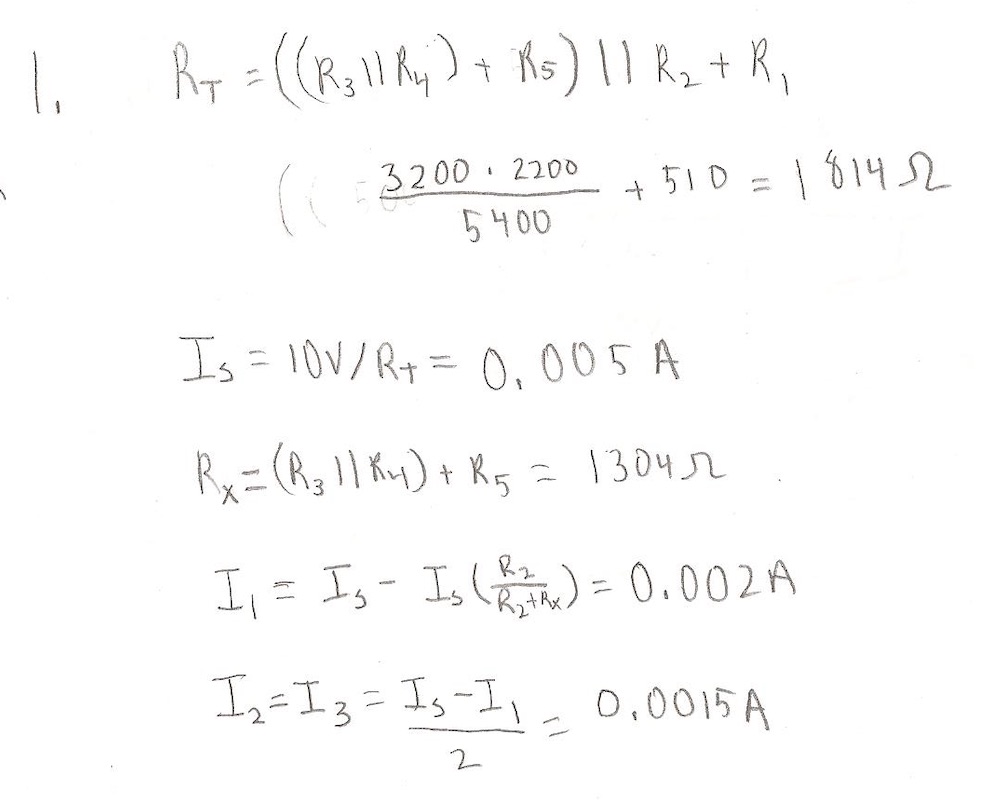 1. R_T = ((R_3 || R_4) + R_5) || R_2 + R_1
(( 3200 · 2200 / 5400 + 510 = 1814 Ω
I_s = 10V/R_T = 0.005 A
R_x = (R_3 || R_4) + R_5 = 1304 Ω
I_1 = I_s - I_s (R_2 / R_2+R_x) = 0.002A
I_2 = I_3 = I_s - I_1 / 2 = 0.0015A